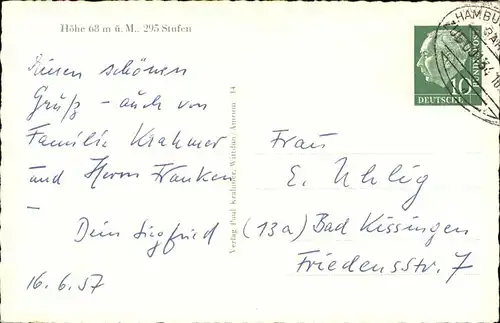 Höhe 68 m ü. M., 295 Stufen
Diesen schönen
Gruß – auch von
Familie Krahmer
und Herrn Franken
–
Dein Siegfried
16.6.57
Verlag Paul Krahmer, Wittdün/Amrum 14
HAMBU
10
DEUTSCHE
Frau
E. Uhlig
(13a) Bad Kissingen
Friedensstr. 7